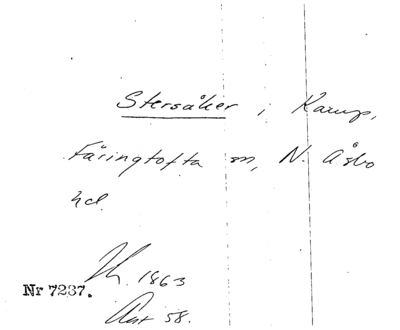 Stersåker i Karup,
Färingtofta sn, N. Åsbo
hd.
1863
Nr 7237.
Akt 58.